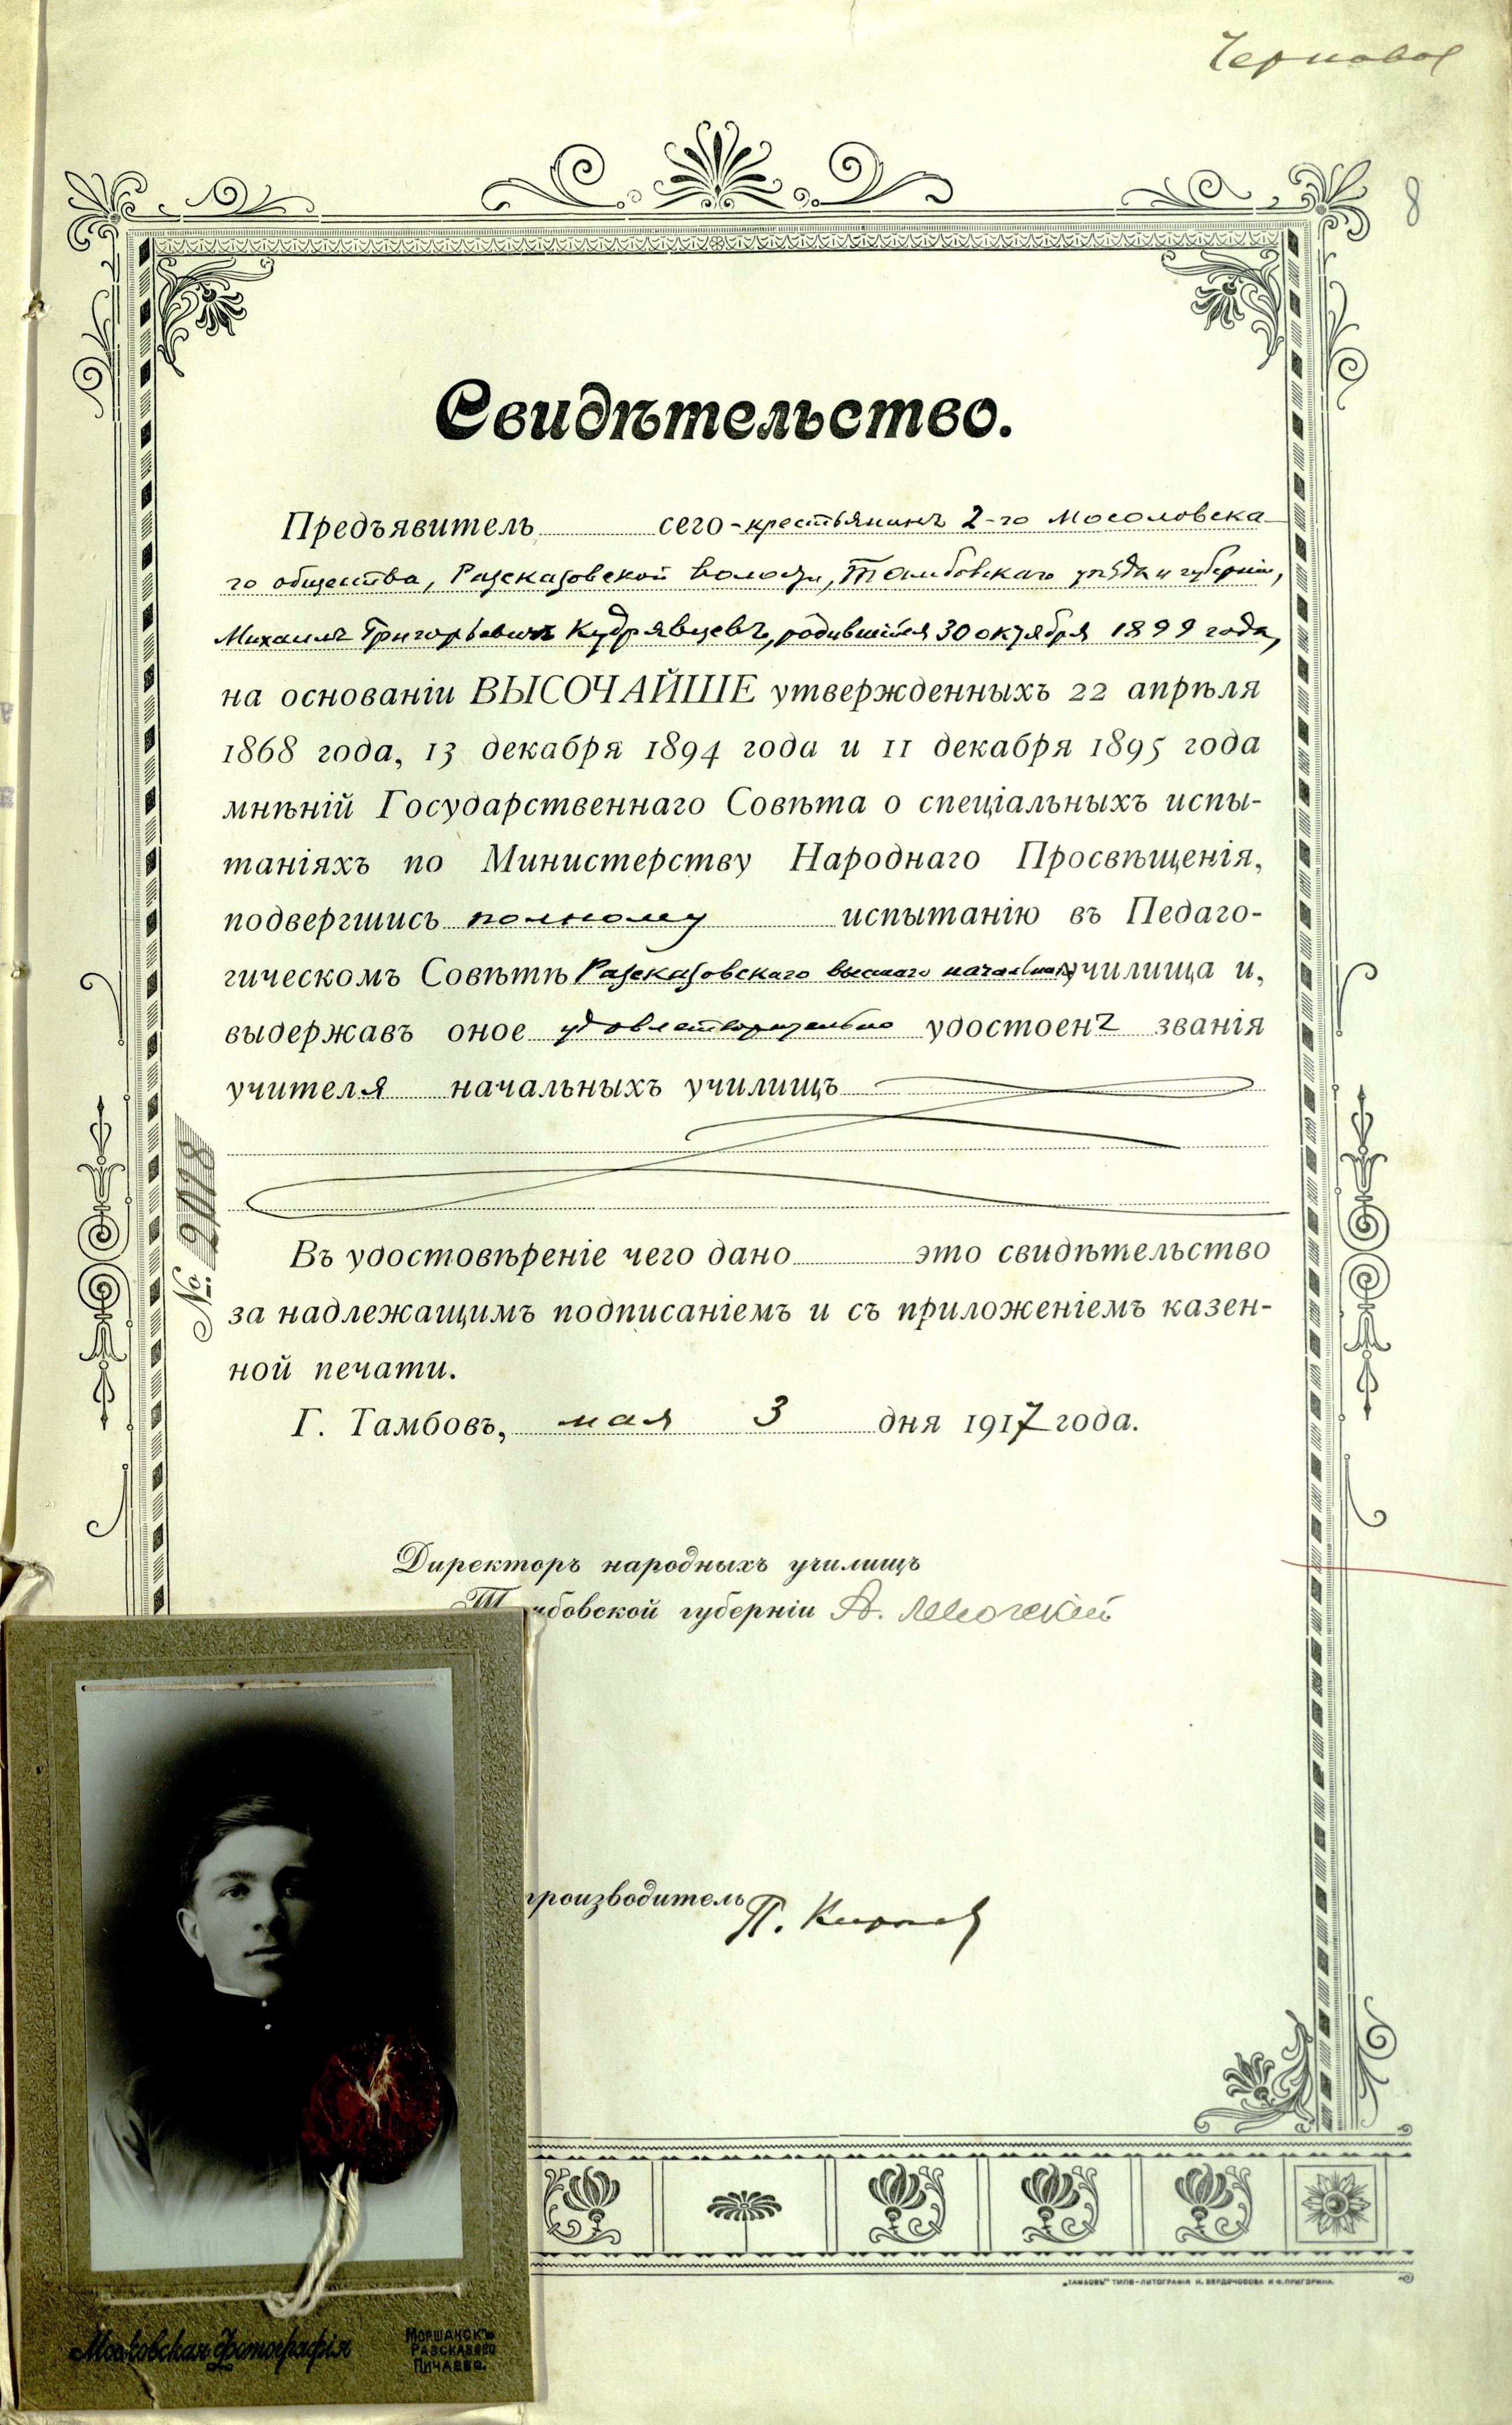 Черновое
8
Свидѣтельство.
Предъявитель сего - крестьянинъ 2-го Мосоловска
го общества, Разсказовской волости, Тамбовскаго уѣзда и губерніи,
Михаилъ Григорьевичъ Кудрявцевъ, родившійся 30 октября 1899 года,
на основаніи ВЫСОЧАЙШЕ утвержденныхъ 22 апрѣля
1868 года, 13 декабря 1894 года и 11 декабря 1895 года
мнѣній Государственнаго Совѣта о спеціальныхъ испы-
таніяхъ по Министерству Народнаго Просвѣщенія,
подвергшись полному испытанію въ Педаго-
гическомъ Совѣтѣ Разсказовскаго высшаго начальнаго училища и,
выдержавъ оное удовлетворительно удостоенъ званія
учителя начальныхъ училищъ
№ 2018
Въ удостовѣреніе чего дано это свидѣтельство
за надлежащимъ подписаніемъ и съ приложеніемъ казен-
ной печати.
Г. Тамбовъ, мая 3 дня 1917 года.
Директоръ народныхъ училищъ
Тамбовской губерніи А.
производитель П.
„ТАМБОВЪ" ТИПО-ЛИТОГРАФІЯ Н. БЕРДОНОСОВА И Ф. ПРИГОРИНА.
Московская Фотографія
МОРШАНСКЪ
РАЗСКАЗОВО
ПИЧАЕВО.